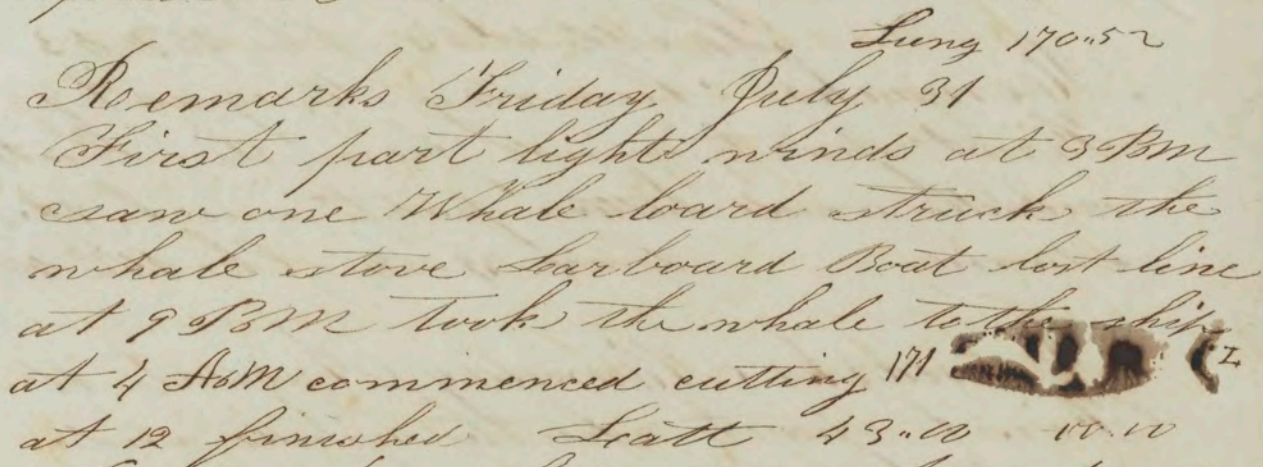 Lung 170..52
Remarks Friday July 31
First part light winds at 3 Pm
saw one Whale loard struck the
whale stove Larboard Boat lost line
at 9 PM took the whale to the ship
at 4 AM commenced cutting 171
at 12 finished Latt 43..00